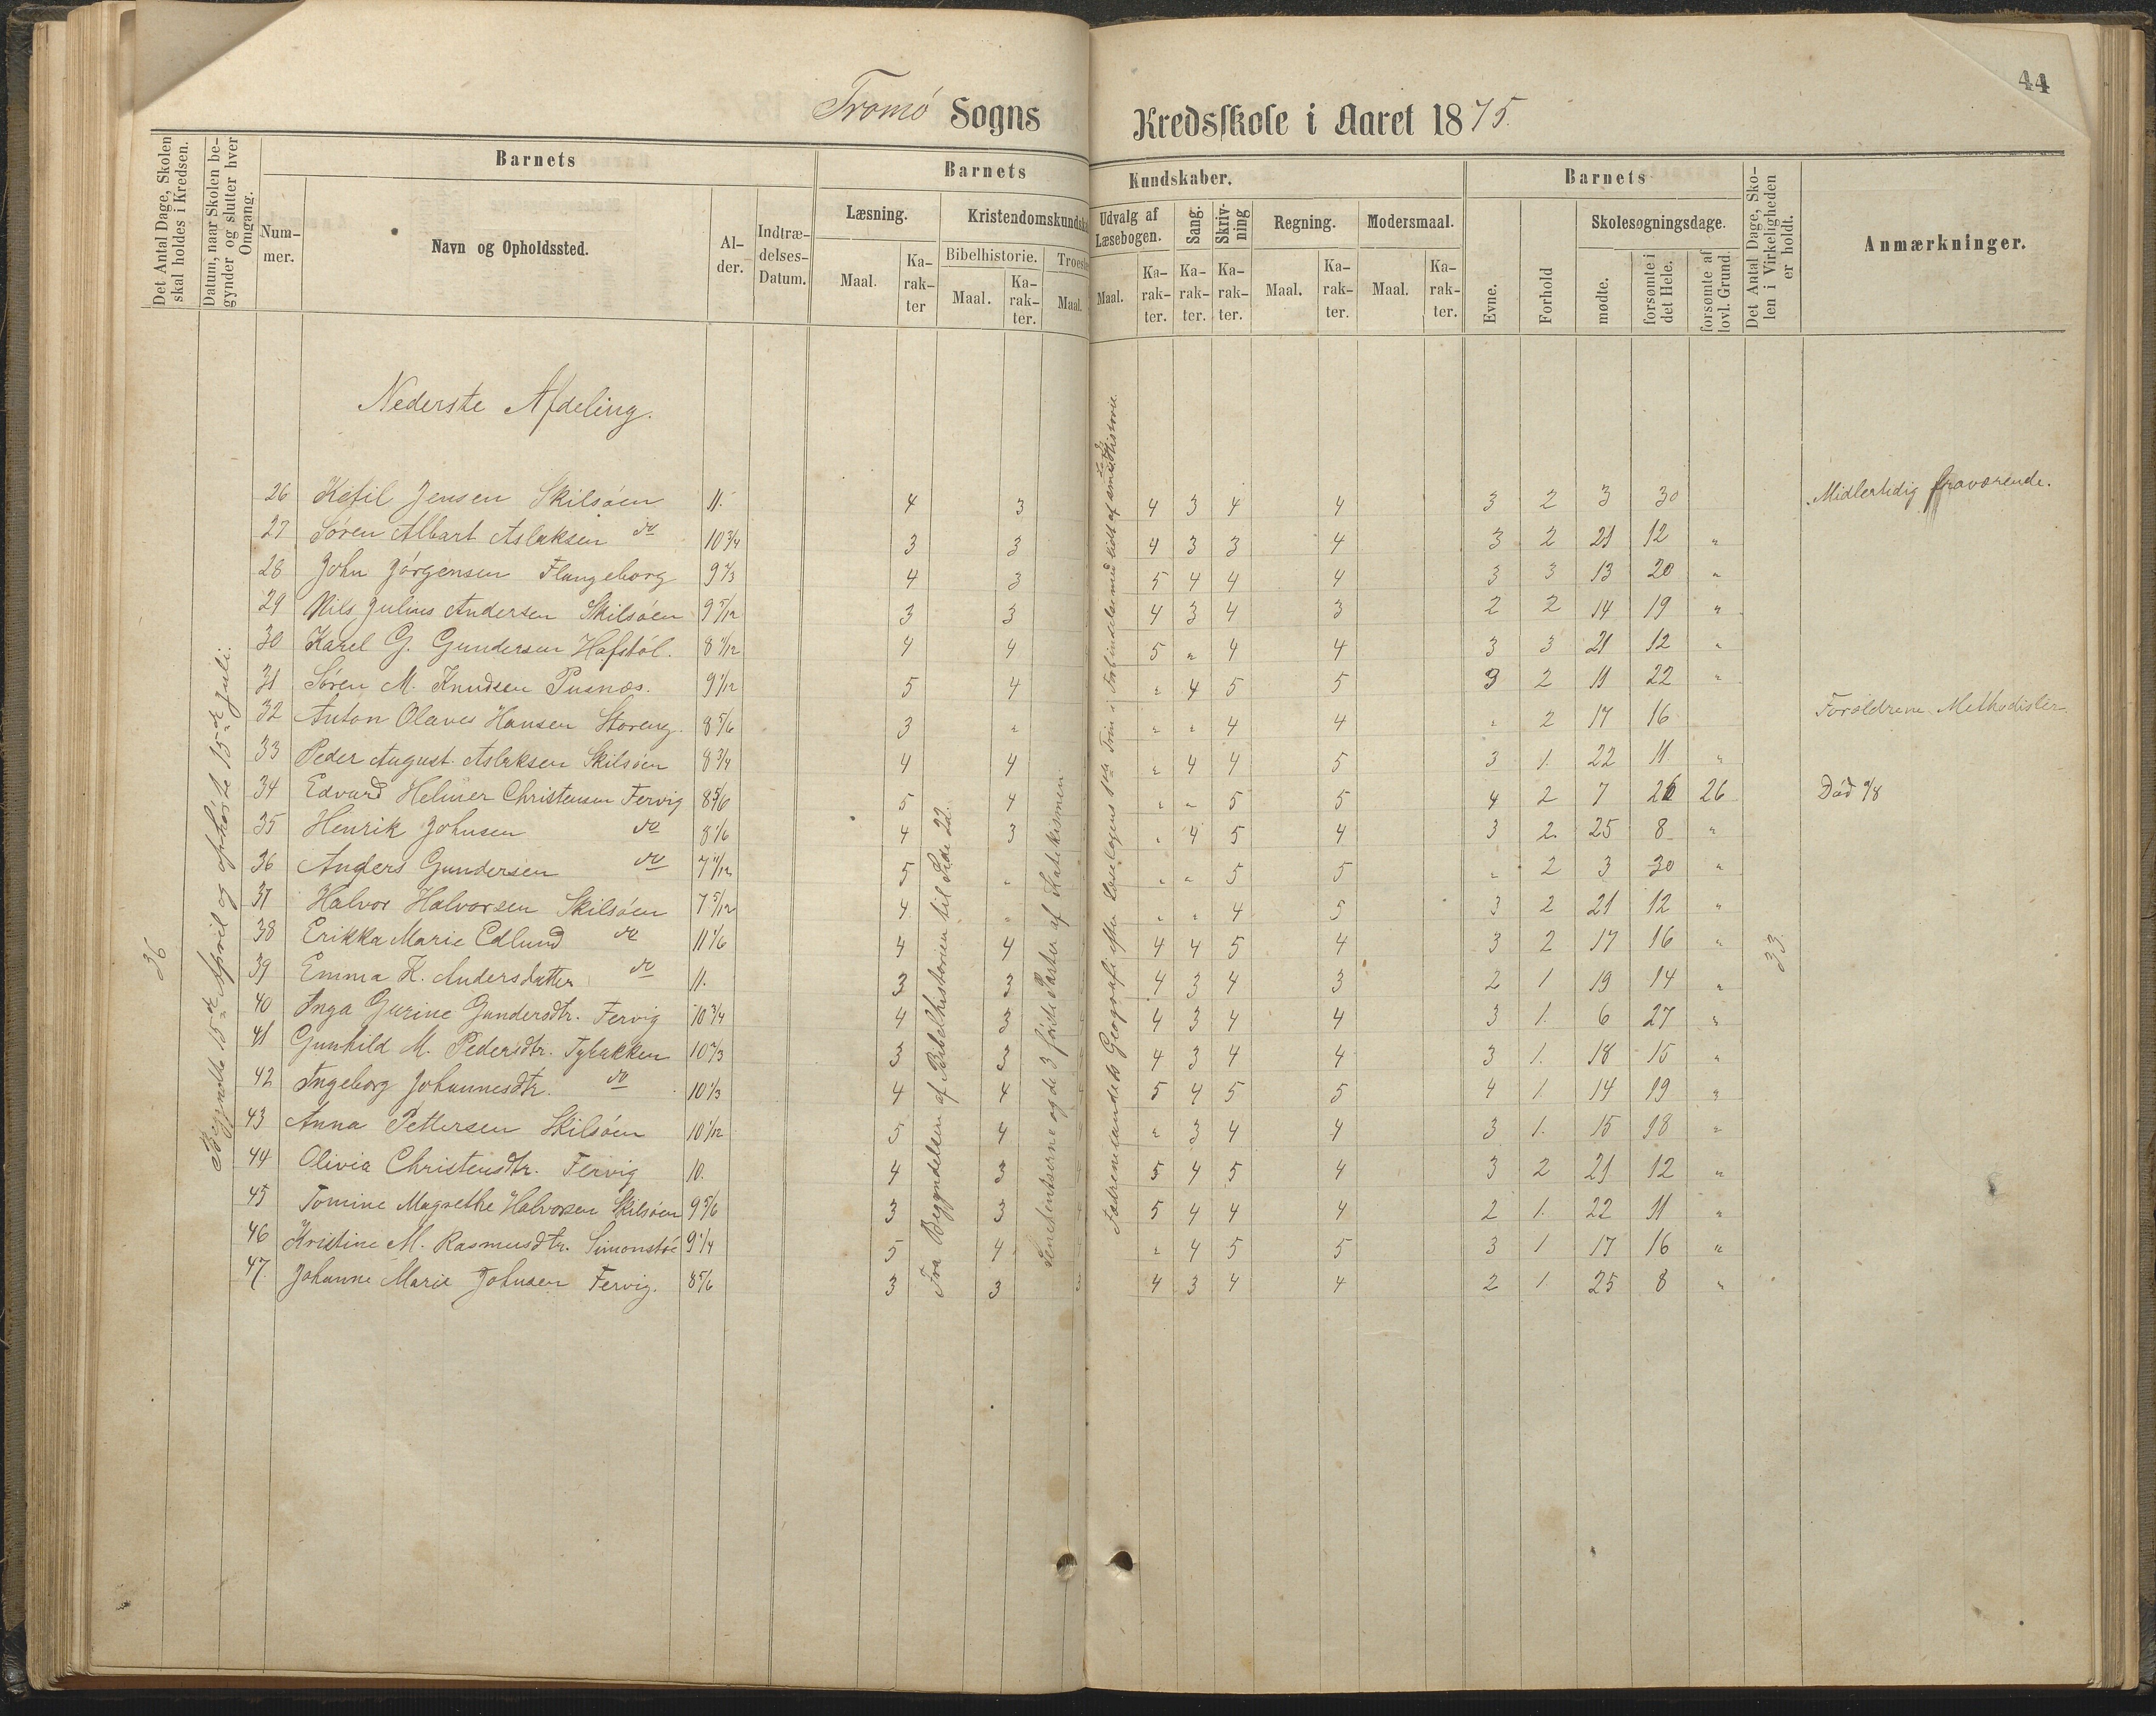 44
Tromø Sogns Kredsskole i Aaret 1875.
Det Antal Dage, Skolen skal holdes i Kredsen.
Datum, naar Skolen begynder og slutter hver Omgang.
Barnets
Nummer.
Navn og Opholdssted.
Alder.
Indtrædelses-Datum.
Barnets Kundskaber.
Læsning.
Maal.
Karakter
Kristendomskundsk
Bibelhistorie.
Maal.
Karakter.
Troesl
Maal.
Udvalg af Læsebogen.
Maal.
Karakter.
Sang.
Karakter.
Skrivning
Karakter.
Regning.
Maal.
Karakter.
Modersmaal.
Maal.
Karakter.
Barnets
Evne.
Forhold
Skolesøgningsdage.
mødte.
forsømte i det Hele.
forsømte af lovl. Grund.
Det Antal Dage, Skolen i Virkeligheden er holdt.
Anmærkninger.
Nederste Afdeling.
36
Begyndte 15de April og ophørte 15de Juli.
Fra Begyndelsen af Bibelhistorien til Side 22.
og de 3 første Parter af Katekismen
Fædrenelandets Geografi efter Læsebogens 1ste Trin i Forbindelse med lidt af Historie.
33
26 Ketil Jensen Skilsøen 11. 4 3 4 3 4 4 3 2 3 30 Midlertidig fraværende.
27 Søren Albart Aslaksen do 10 3/4 3 3 4 3 3 4 3 2 21 12 "
28 John Jørgensen Flangeborg 9 1/3 4 3 5 4 4 4 3 3 13 20 "
29 Nils Julius Andersen Skilsøen 9 5/12 3 3 4 3 4 3 2 2 14 19 "
30 Karel G. Gundersen Hafstøl. 8 11/12 4 4 5 " 4 4 3 3 21 12 "
31 Søren M. Knudsen Pusnæs. 9 1/12 5 4 " 4 5 5 3 2 11 22 "
32 Anton Olaves Hansen Støreng. 8 5/6 3 " " " 4 4 " 2 17 16 Forældrene Methodister.
33 Peder August Aslaksen Skilsøen 8 3/4 4 4 " 4 4 5 3 1. 22 11 "
34 Edvard Helmer Christensen Fervig 8 5/6 5 4 " " 5 5 4 2 7 26 26 Død 9/8
35 Henrik Johnsen do 8 1/6 4 3 " 4 5 4 3 2. 25 8 "
36 Anders Gundersen do 7 11/12 5 " " " 5 5 " 2 3 30 "
37 Halvor Halvorsen Skilsøen 7 5/12 4 " " " 4 5 3 2 21 12 "
38 Erikka Marie Edlund do 11 1/6 4 4 4 4 5 4 3 2 17 16 "
39 Emma K. Andersdatter do 11. 3 3 4 3 4 3 2 1 19 14 "
40 Inga Gurine Gundersdtr. Fervig 10 3/4 4 3 4 3 4 4 3 1. 6 27 "
41 Gunhild M. Pedersdtr. Tybakken 10 2/3 3 3 4 3 4 4 3 1. 18 15 "
42 Ingeborg Johannesdtr. do 10 1/3 4 4 5 4 5 5 4 1. 14 19 "
43 Anna Pettersen Skilsøen 10 1/12 3 4 " 3 4 4 3 1. 15 18 "
44 Olivia Christensdtr. Fervig 10. 4 3 5 4 5 4 3 2 21 12 "
45 Tomine Magrethe Halvorsen Skilsøen 9 5/6 3 3 5 4 4 4 2 1. 22 11 "
46 Kristine M. Rasmusdtr. Simonstøe 9 1/4 5 4 " 4 5 5 3 1 17 16 "
47 Johanne Marie Johnsen Fervig. 8 5/6 3 3 3 4 3 4 4 2 1. 25 8 "